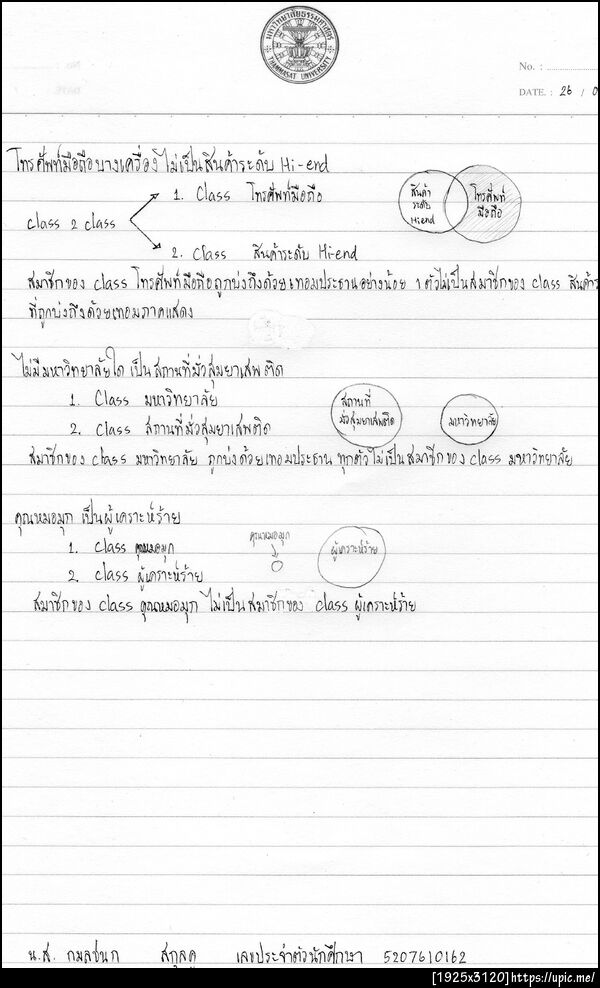 มหาวิทยาลัยธรรมศาสตร์
THAMMASAT UNIVERSITY
No. :
DATE. : 26 / 0
โทรศัพท์มือถือบางเครื่อง ไม่เป็นสินค้าระดับ Hi-end
1. Class โทรศัพท์มือถือ
สินค้า ระดับ Hi-end
โทรศัพท์ มือถือ
class 2 class
2. class สินค้าระดับ Hi-end
สมาชิกของ class โทรศัพท์มือถือถูกบ่งถึงด้วยเทอมประธานอย่างน้อย 1 ตัวไม่เป็นสมาชิกของ class สินค้าร
ที่ถูกบ่งถึงด้วยเทอมภาคแสดง
ไม่มีมหาวิทยาลัยใด เป็นสถานที่มั่วสุมยาเสพติด
1. Class มหาวิทยาลัย
สถานที่ มั่วสุมยาเสพติด
มหาวิทยาลัย
2. Class สถานที่มั่วสุมยาเสพติด
สมาชิกของ class มหาวิทยาลัย ถูกบ่งด้วยเทอมประธาน ทุกตัวไม่เป็นสมาชิกของ class มหาวิทยาลัย
คุณหมอมุก เป็นผู้เคราะห์ร้าย
คุณหมอมุก
1. class คุณหมอมุก
ผู้เคราะห์ร้าย
2. class ผู้เคราะห์ร้าย
สมาชิกของ class คุณหมอมุก ไม่เป็นสมาชิกของ class ผู้เคราะห์ร้าย
น.ส. กมลชนก สกุลคู เลขประจำตัวนักศึกษา 5207610162
[1925x3120]https://upic.me/